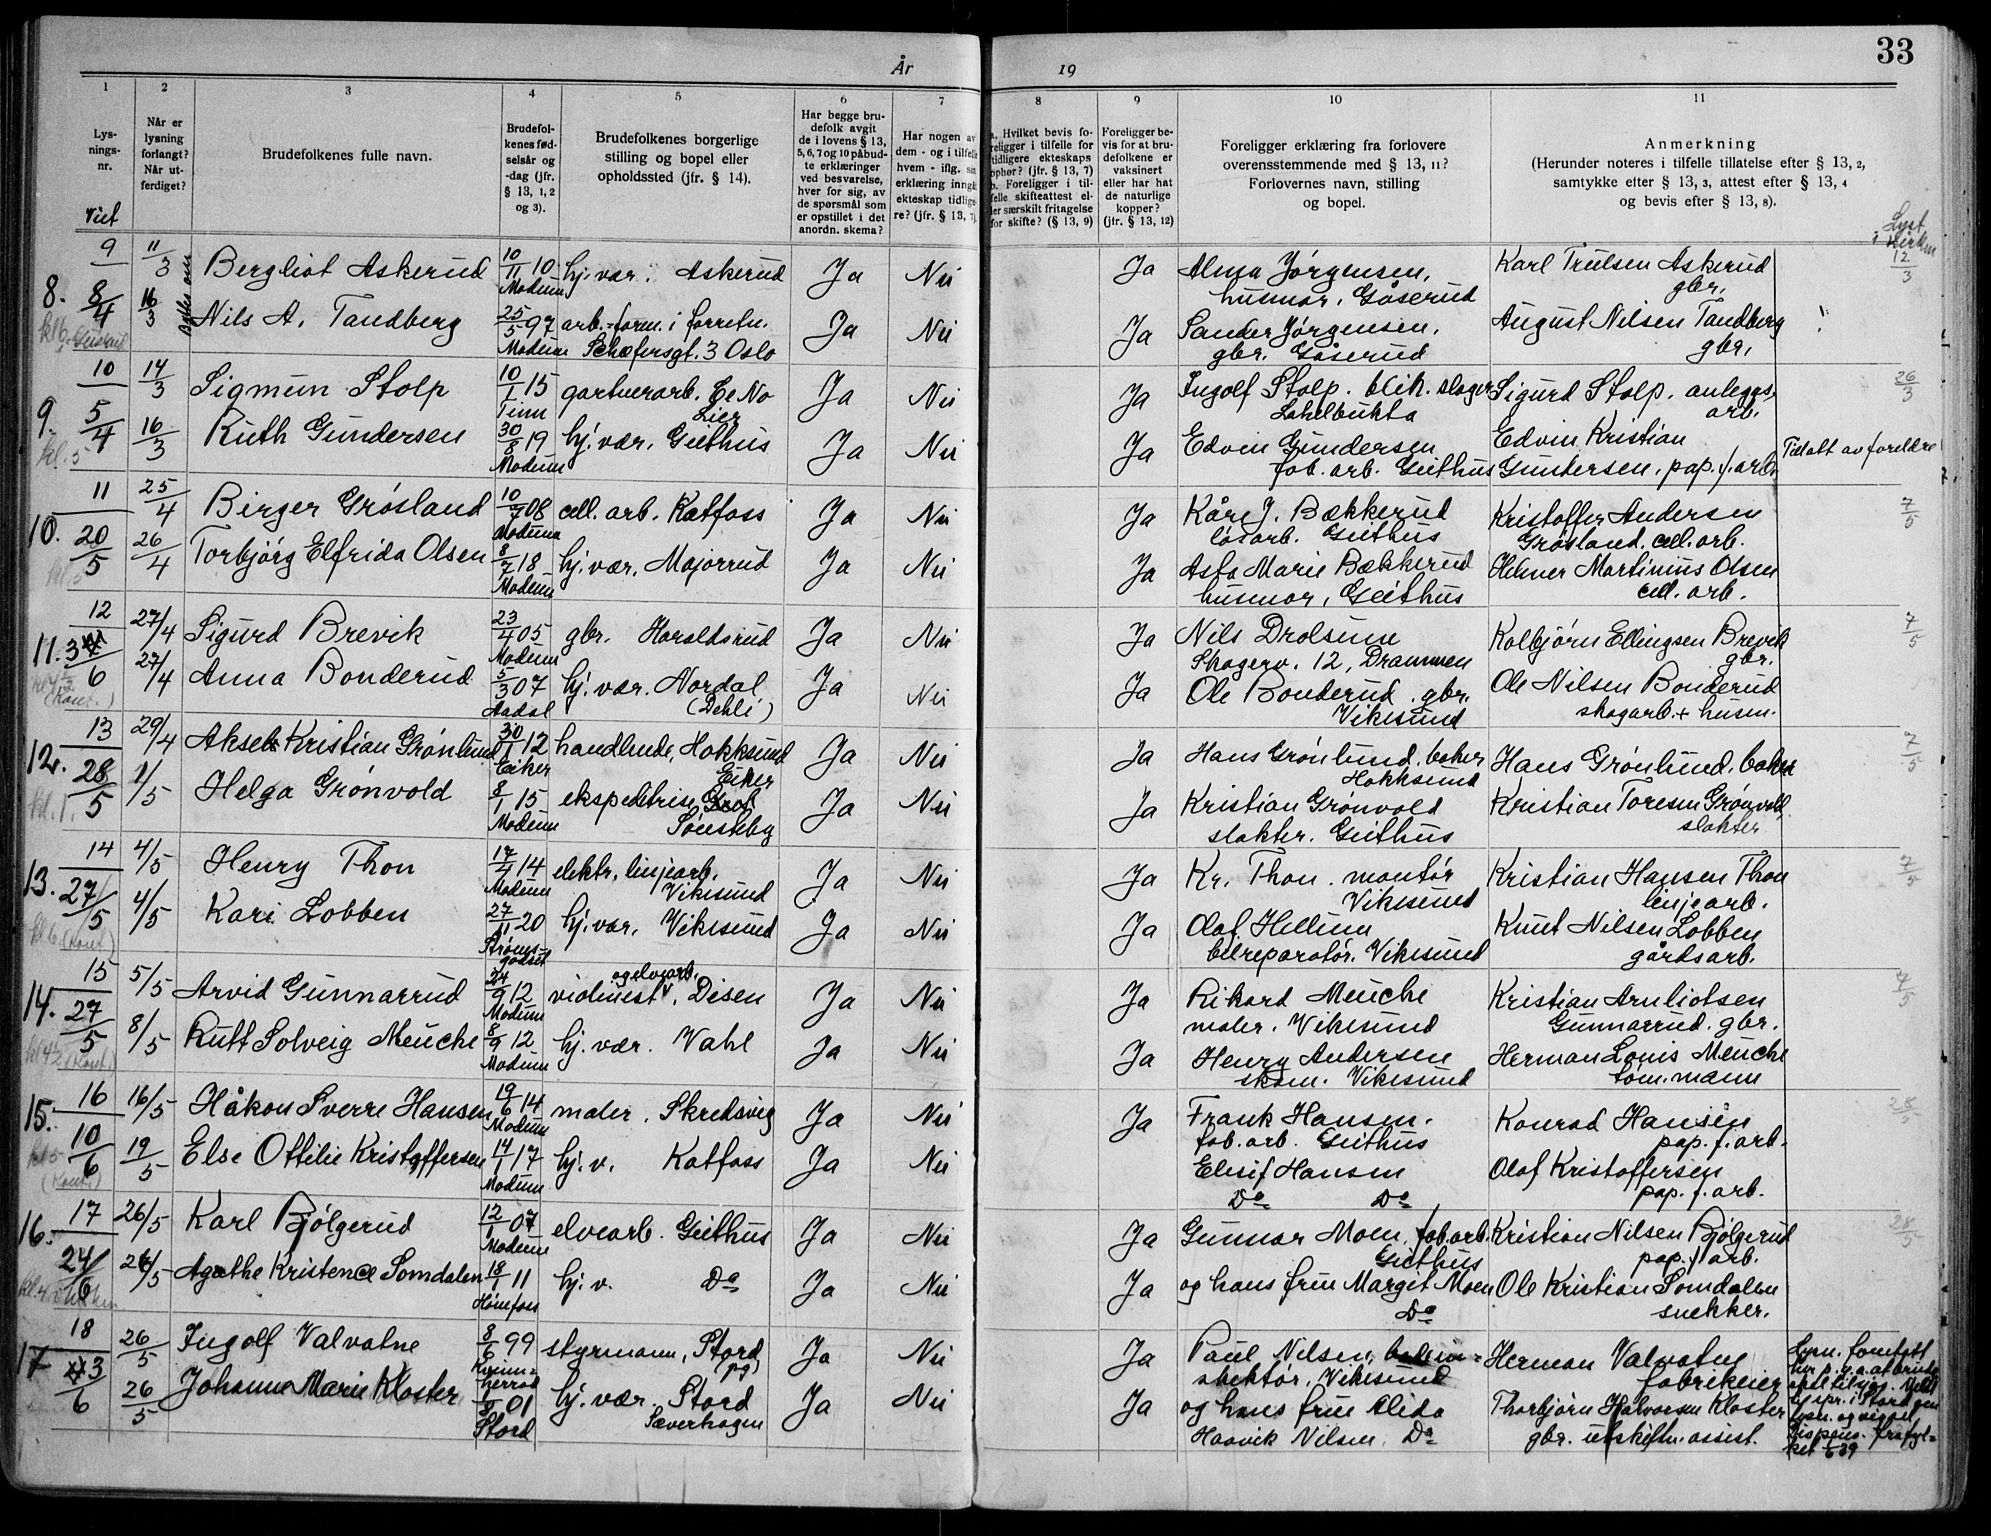 33
År
19
1
2
3
4
5
6
7
8
9
10
11
Lys-
nings-
nr.
Når er
lysning
forlangt?
Når ut-
ferdiget?
Brudefolkenes fulle navn.
Brudefol-
kenes fød-
selsår og
-dag (jfr.
§ 13, 1, 2
og 3).
Brudefolkenes borgerlige
stilling og bopel eller
opholdssted (jfr. § 14).
Har begge bru-
defolk avgit
de i lovens § 13,
5, 6, 7 og 10 påbud-
te erklæringer
ved besvarelse,
hver for sig, av
de spørsmål som
er opstillet i det
anordn. skema?
Har nogen av
dem - og i tilfelle
hvem - iflg. sin
erklæring inngått
ekteskap tidlige-
re? (jfr. § 13, 7).
a. Hvilket bevis fo-
religger i tilfelle for
tidligere ekteskaps
ophør? (jfr. § 13, 7)
b. Foreligger i til-
felle skifteattest el-
ler særskilt fritagelse
for skifte? (§ 13, 9)
Foreligger be-
vis for at bru-
defolkene er
vaksinert
eller har hat
de naturlige
kopper?
(jfr. § 13, 12)
Foreligger erklæring fra forlovere
overensstemmende med § 13, 11?
Forlovernes navn, stilling
og bopel.
Anmerkning
(Herunder noteres i tilfelle tillatelse efter § 13, 2,
samtykke efter § 13, 3, attest efter § 13, 4
og bevis efter § 13, 8).
Viet
Lyst
i kirken
8. 9 8/4 11/3 Bergliot Askerud 10/11 10 Modum hj. vær. Askerud Ja Nei Ja Alma Jørgensen, husmor, Gåserud Karl Trulsen Askerud gbr. 12/3
16/3 Nils A. Tandberg 25/5 97 Modum arb.-form. i forretn. Schæfersgt. 3 Oslo Ja Nei Ja Sander Jørgensen, gbr. Gåserud August Nilsen Tandberg gbr.
9. 10 5/4 kl. 5 14/3 Sigmun Stolp 10/1 15 Tinn gartnerarb. Lier Ja Nei Ja Ingolf Stolp. blik.slager Lahelbukta Sigurd Stolp. anleggs. arb. 26/3
16/3 Ruth Gundersen 30/8 19 Modum hj. vær. Geithus Ja Nei Ja Edvin Gundersen fab. arb. Geithus Edvin Kristian Gundersen. pap. f. arb. Tillatt av foreldre
10. 11 20/5 25/4 Birger Grøsland 10/7 08 Modum cell. arb. Katfoss Ja Nei Ja Kåre J. Bækkerud løsarb. Geithus Kristoffer Andersen Grøsland. cell. arb. 7/5
26/4 Torbjørg Elfrida Olsen 8/7 18 Modum hj. vær. Majorrud Ja Nei Ja Asta Marie Bækkerud husmor, Geithus Helmer Martinius Olsen cell. arb.
11. 12 3/6 27/4 Sigurd Brevik 23/4 05 Modum gbr. Haraldsrud Ja Nei Ja Nils Drolsum Skogerv. 12, Drammen Kolbjørn Ellingsen Brevik gbr. 7/5
27/4 Anna Bonderud 5/3 07 Aadal hj. vær. Nordal (Dehli) Ja Nei Ja Ole Bonderud. gbr. Vikesund Ole Nilsen Bonderud skogarb. + husm.
12. 13 28/5 kl. 1. 29/4 Aksel Kristian Grønlund 30/1 12 Eiker handlende, Hokksund Eiker Ja Nei Ja Hans Grønlund. baker Hokksund Hans Grønlund, baker 7/5
1/5 Helga Grønvold 8/1 15 Modum ekspeditrise Sønsteby Ja Nei Ja Kristian Grønvold slakter. Geithus Kristian Toresen Grønvold slakter
13. 14 27/5 kl. 6 (Kont.) 4/5 Henry Thon 17/4 14 Modum elektr. linjearb. Vikesund Ja Nei Ja Kr. Thon. montør Vikesund Kristian Hansen Thon linjearb. 7/5
4/5 Kari Lobben 27/11 20 Strøms-godset hj. vær. Vikesund Ja Nei Ja Olaf Hellum bilreparatør. Vikesund Knut Nilsen Lobben gårdsarb.
14. 15 27/5 (Kont.) 5/5 Arvid Gunnarrud 24/9 12 Modum violinist og elvearb. Disen Ja Nei Ja Rikard Meuche maler. Vikesund Kristian Arnliotsen Gunnarrud. gbr. 7/5
8/5 Rutt Solveig Meuche 8/9 12 Modum hj. vær. Vahl Ja Nei Ja Henry Andersen skom. Vikesund Herman Louis Meuche tøm. mann
15. 16 10/6 kl 5 (Kont.) 16/5 Håkon Sverre Hansen 19/6 14 Modum maler. Skredsvig Ja Nei Ja Frank Hansen. fab. arb. Geithus Konrad Hansen pap. f. arb. 28/5
19/5 Else Ottilie Kristoffersen 14/1 17 Modum hj. v. Katfoss Ja Nei Elisif Hansen Do Do Olaf Kristoffersen pap. f. arb.
16. 17 24/6 26/5 Karl Bjølgerud 12/1 07 Modum elvearb. Geithus Ja Nei Ja Gunnar Moen, fab. arb. Geithus Kristian Nilsen Bjølgerud pap. f. arb. 28/5
26/5 Agathe Kristence Somdalen 18/1 11 Hønefoss hj. v. Do Ja Nei Ja og hans frue Margit Moen Do Ole Kristian Somdalen snekker.
17 18 3/6 26/5 Ingolf Valvatne 8/6 99 Kvinn-herrad styrmann, Stord (pg) Ja Nei Ja Paul Nilsen, Vikesund Herman Valvatne fabrikeier
26/5 Johanna Marie Kloster 01 Stord hj. vær. Stord Sæverhagen Ja Nei Ja og hans frue Alida Haavik Nilsen. Do Thorbjørn Halvorsen Kloster gbr. utskiftn. assist.
Lysn. foretatt